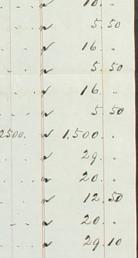 10. "
5. 50
16. "
5. 50
16. "
5. 50
2500. 1,500. "
29. "
20. "
12. 50
20. "
29. 10